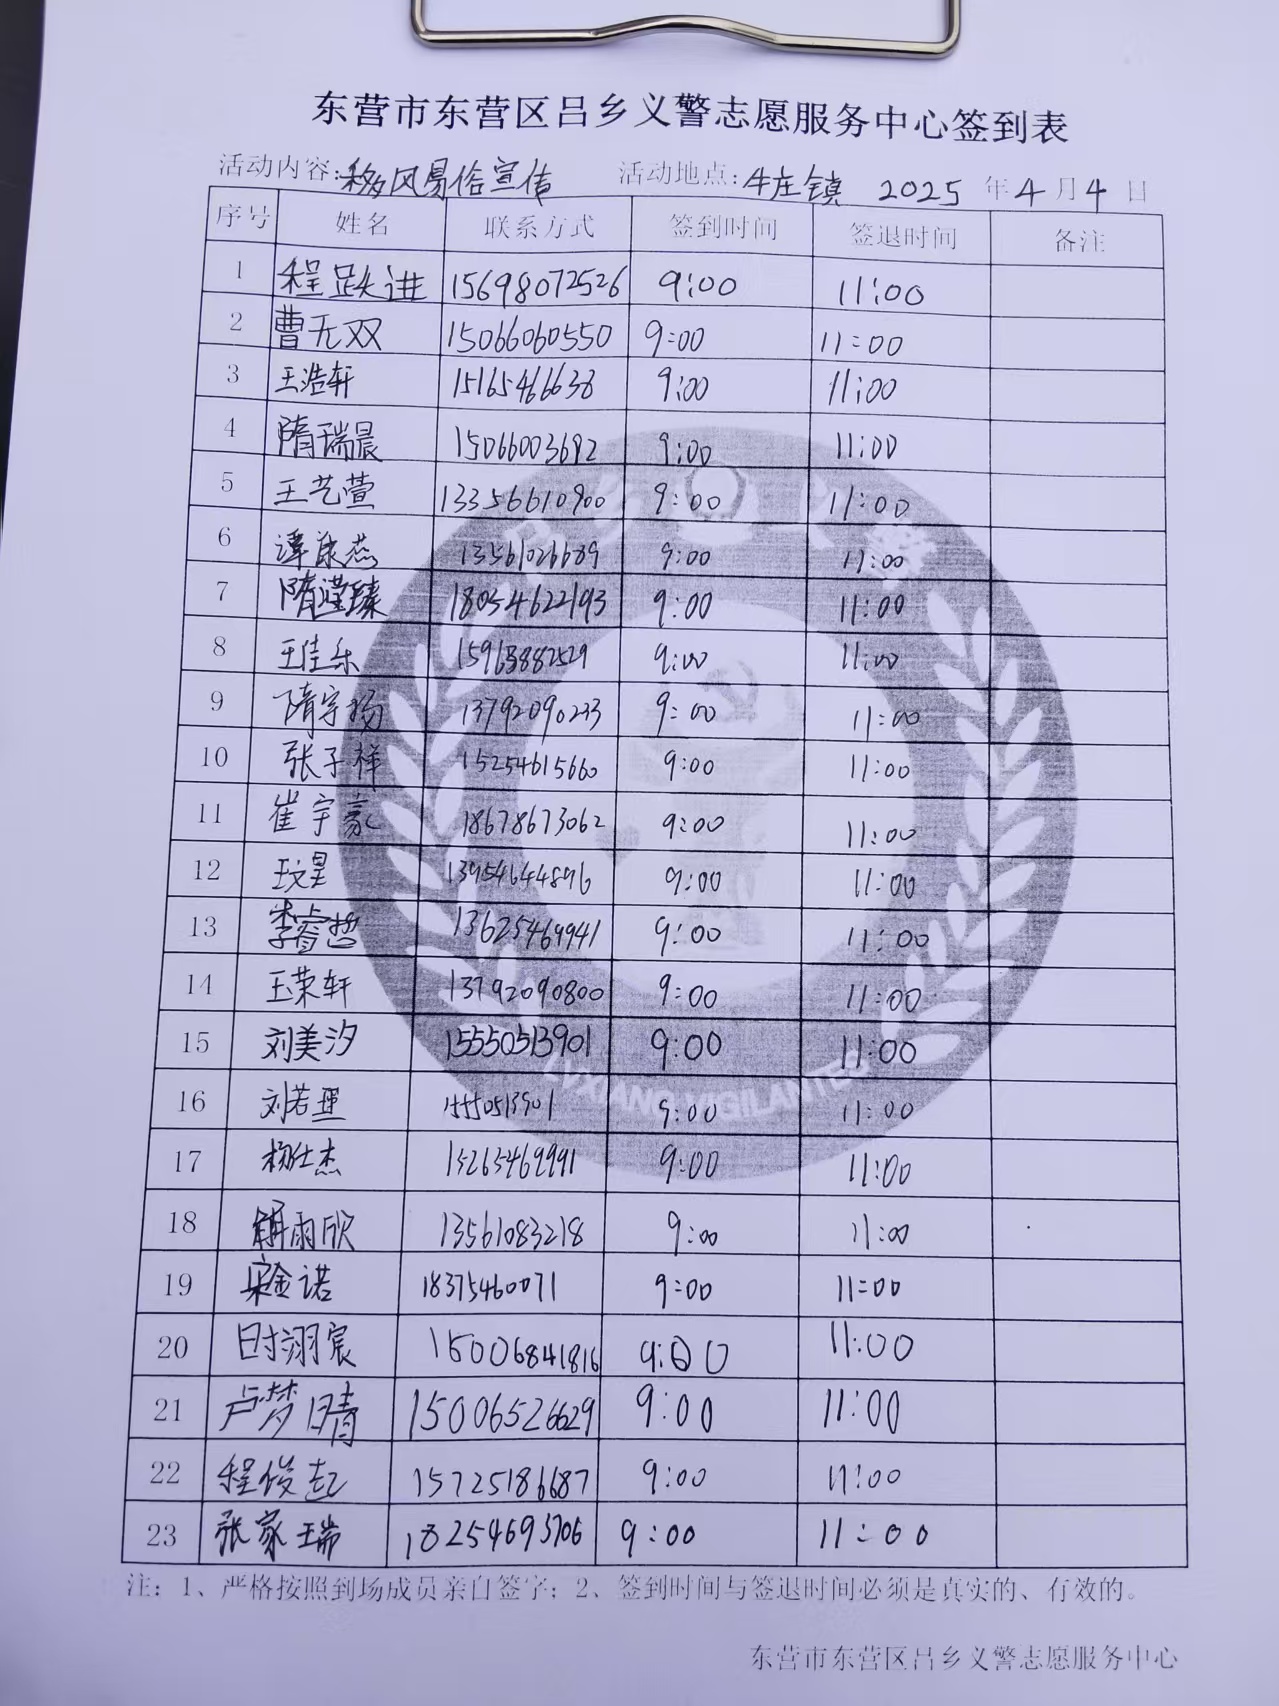 东营市东营区吕乡义警志愿服务中心签到表
活动内容:移风易俗宣传 活动地点:牛庄镇 2025 年 4 月 4 日
序号 姓名 联系方式 签到时间 签退时间 备注
1 程跃进 15698072526 9:00 11:00
2 曹无双 15066060550 9:00 11:00
3 王浩轩 15165466638 9:00 11:00
4 隋瑞晨 15066003692 9:00 11:00
5 王艺萱 13356610900 9:00 11:00
6 谭康燕 13561026689 9:00 11:00
7 隋滢臻 18054622193 9:00 11:00
8 王佳乐 15963882529 9:00 11:00
9 隋宇扬 13792090233 9:00 11:00
10 张子祥 15254615660 9:00 11:00
11 崔宇豪 18678673062 9:00 11:00
12 王文昊 13954644896 9:00 11:00
13 李睿哲 13625469941 9:00 11:00
14 王荣轩 13792090800 9:00 11:00
15 刘美汐 15550513901 9:00 11:00
16 刘若瑾 15550513901 9:00 11:00
17 杨仕杰 15263469991 9:00 11:00
18 解雨欣 13561083218 9:00 11:00
19 宋金诺 18375460071 9:00 11:00
20 时翊宸 15006841816 9:00 11:00
21 卢梦晴 15006526629 9:00 11:00
22 程俊起 15725186687 9:00 11:00
23 张家瑞 18254693706 9:00 11:00
LVXIANG VIGILANTES
注：1、严格按照到场成员亲自签字；2、签到时间与签退时间必须是真实的、有效的。
东营市东营区吕乡义警志愿服务中心